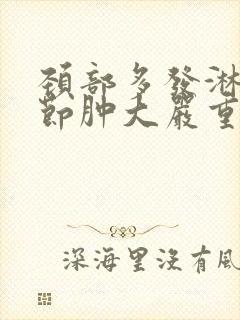 頚部多發淋
節肿大嚴重
深海里沒有風